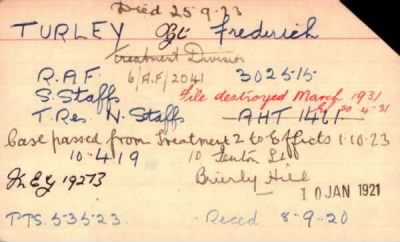 Died 25.9.23
TURLEY Frederich
Treatment Division
R.A.F. 6/A.F/2041 302515
S. Staffs File destroyed March 1931
4.31
T. Res. N. Staffs AHT 1461
Case passed from Treatment 2 to Effects 1.10.23
10.4.19 10 St
19273 Brierly Hill
10 JAN 1921
PTS. 535.23. Recd 8-9-20